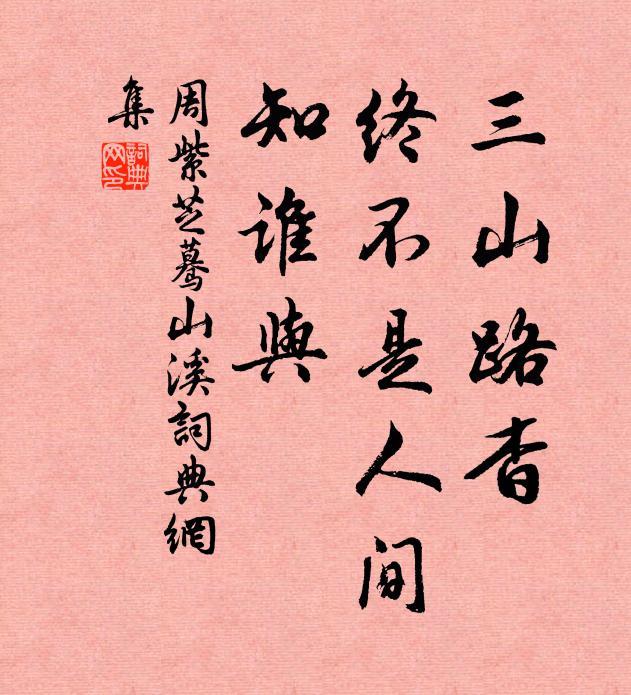 三山路杳
终不是人间
知谁與
周紫芝蓦山溪詞典網
集
詞典網印